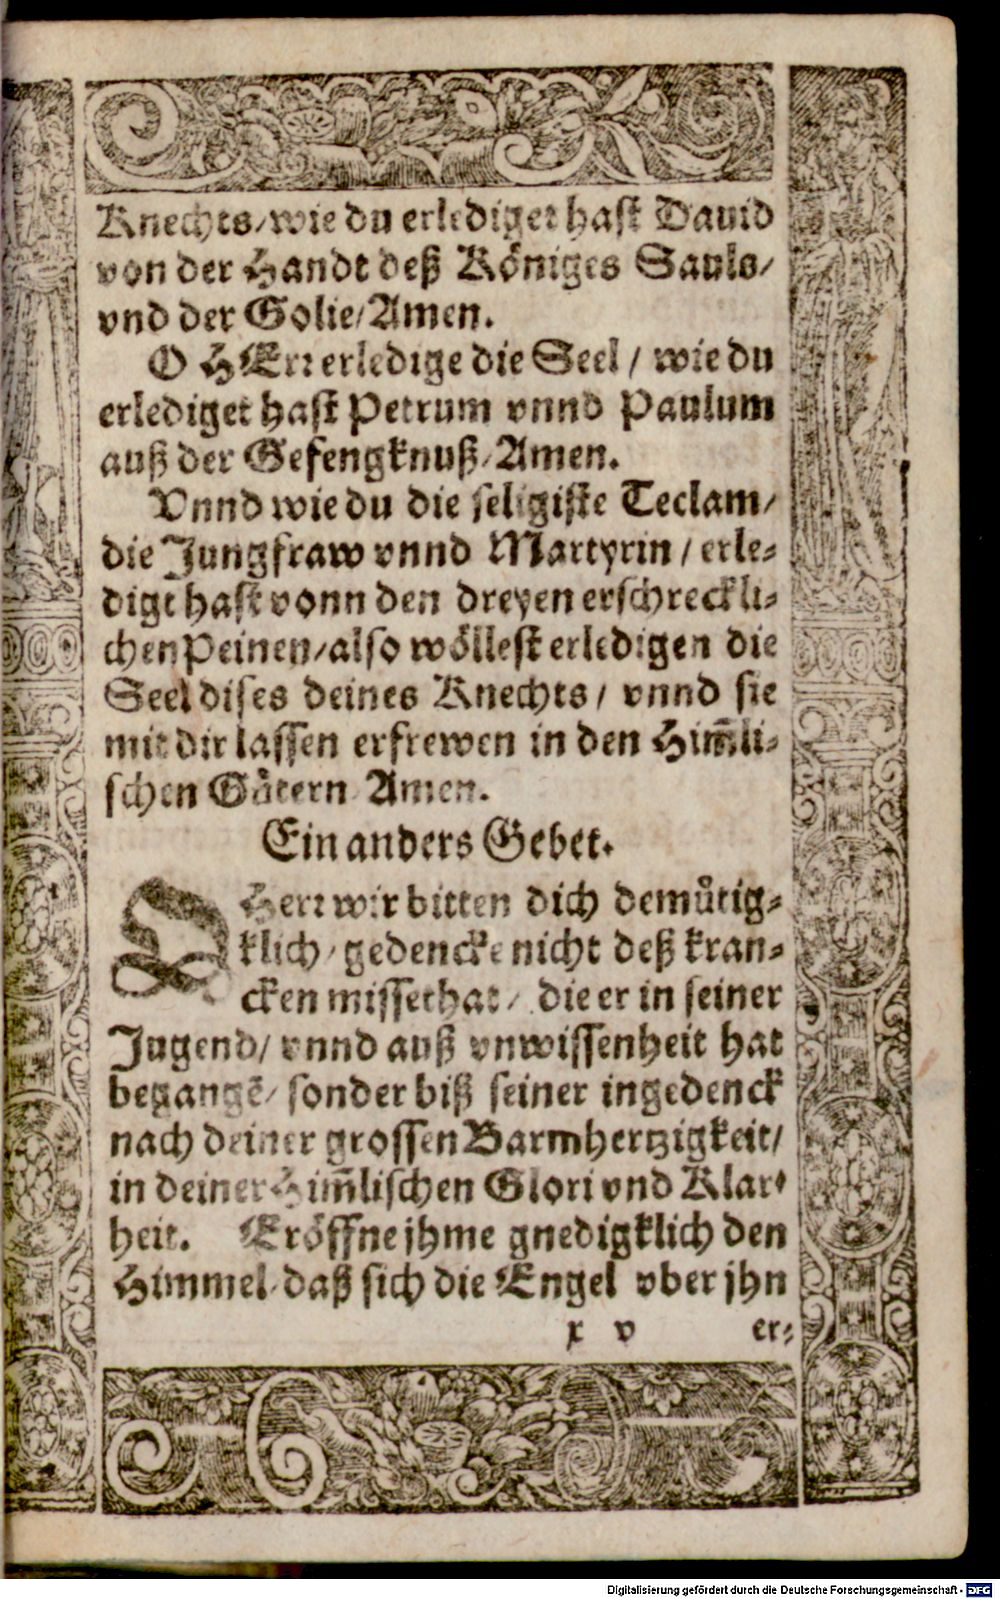 Knechts/wie du erlediget hast Dauid
von der Handt deß Königes Sauls/
vnd der Golie/Amen.
O HErr erledige die Seel / wie du
erlediget hast Petrum vnnd Paulum
auß der Gefengknuß/Amen.
Vnnd wie du die seligiste Teclam/
die Jungfraw vnnd Martyrin / erle-
digt hast vonn den dreyen erschreckli-
chen Peinen/also wöllest erledigen die
Seel dises deines Knechts/ vnnd sie
mit dir lassen erfrewen in den Him̄li-
schen Gůtern Amen.
Ein anders Gebet.
O Herr wir bitten dich demůtig-
klich/gedencke nicht deß kran-
cken missethat/ die er in seiner
Jugend/ vnnd auß vnwissenheit hat
begangē/ sonder biß seiner ingedenck
nach deiner grossen Barmhertzigkeit/
in deiner Him̄lischen Glori vnd Klar-
heit. Eröffne jhme gnedigklich den
Himmel/daß sich die Engel vber jhn
x v er-
Digitalisierung gefördert durch die Deutsche Forschungsgemeinschaft - DFG